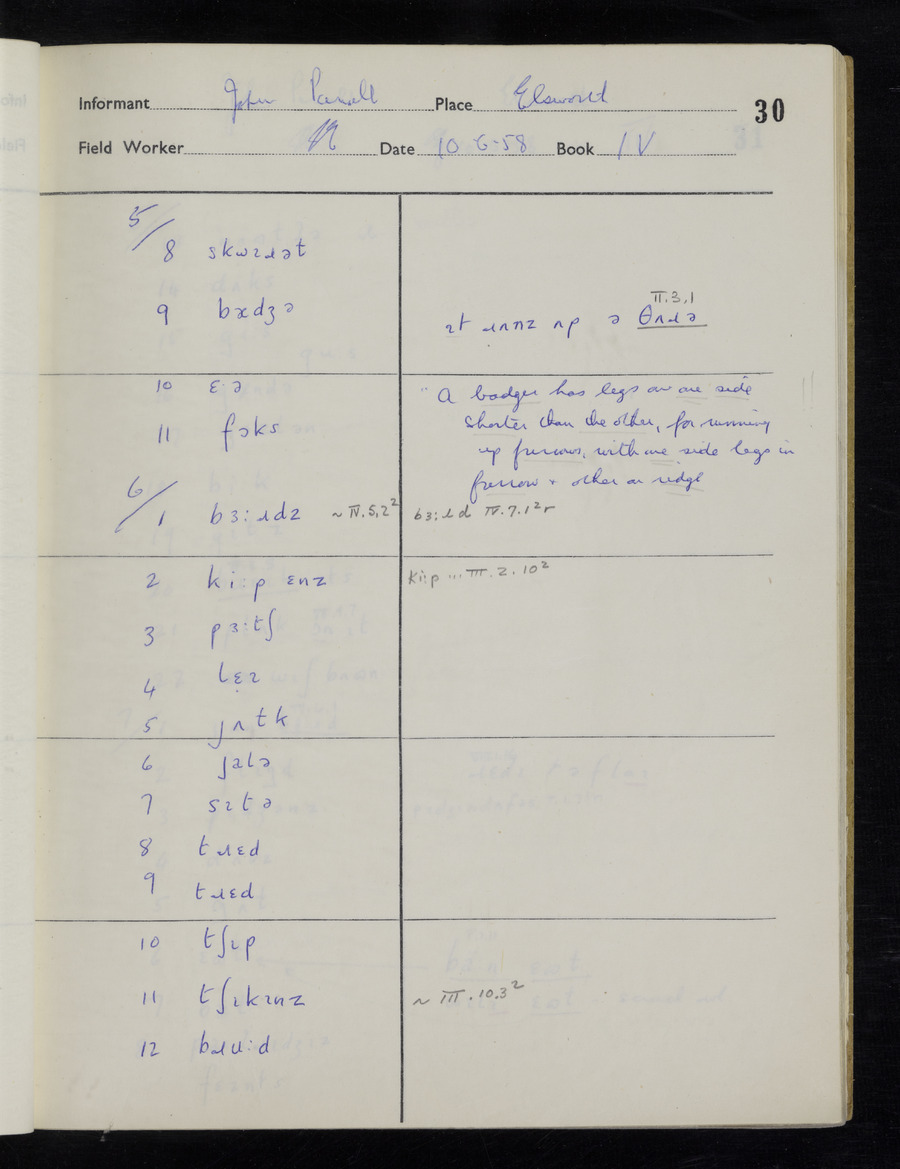 Informant John Place Elsworth 30
Field Worker Date 10-6-58 Book IV
5/
8 skwɪɹət
9 bædʒə
II.3.1
ɪt ɹʌnz ʌp ə θʌɹə
10 ɛə
"A badger has legs on one side
11 fɔks
shorter than the other, for running
up furrows, with one side legs in
furrow + other on ridge
6/
1 bɜ:ɹdz ~ IV.5.2² bɜ:ɹd IV.7.1²r
2 ki:p ɛnz ki:p ... III.2.10²
3 pɜ:tʃ
4 lɛɪ
5 jʌtk
6 jalə
7 sɪtə
8 tɹɛd
9 tɹɛd
10 tʃɪp
11 tʃɪkɪnz ~ III.10.3²
12 bɹu:d